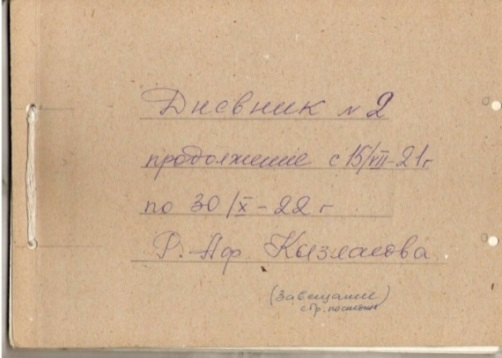 Дневник № 2
продолжение с 15/VII-21 г
по 30/X-22 г
Р. Аф. Кызласова
(Завещание)
стр.